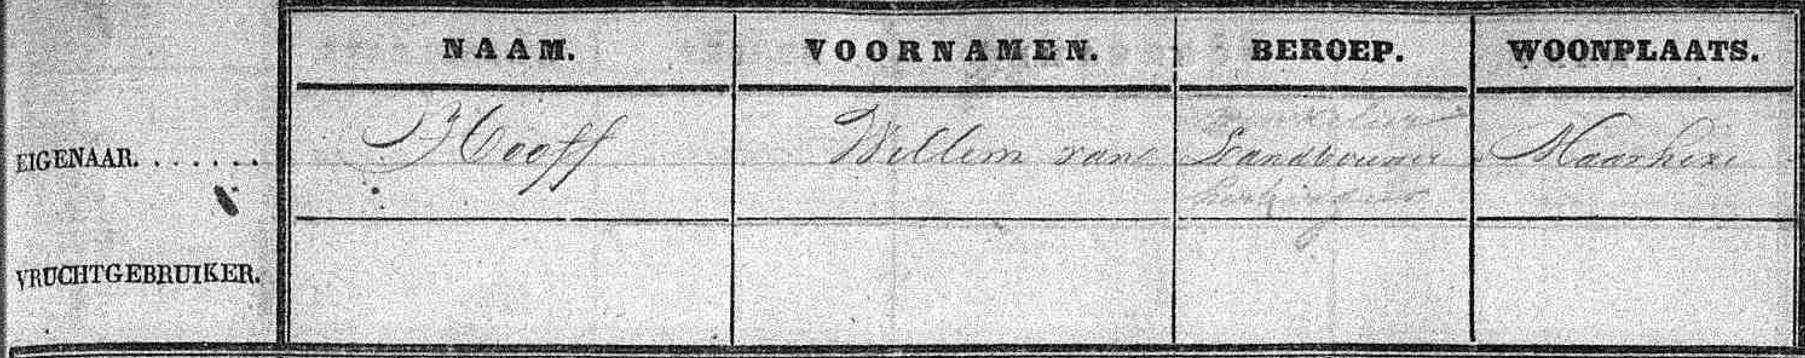 NAAM. VOORNAMEN. BEROEP. WOONPLAATS.
winkelier
EIGENAAR. . . . . . . Hooff Willem van Landbouwer Maarheze
VRUCHTGEBRUIKER.